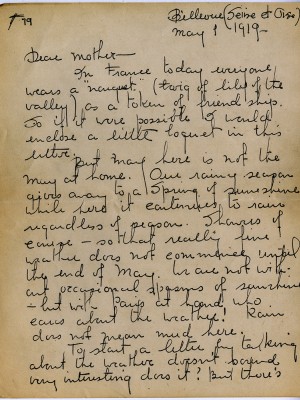 79
Bellevue (Seine et Oise)
May 1 1919-
Dear Mother-
In France today everyone
wears a "muguet", (twig of lily of the
valley) as a token of friendship.
So if it were possible I would
enclose a little boquet in this
letter.
But May here is not the
May at home. Our rainy season
gives away to a Spring of sunshine
while here it continues to rain
regardless of season. Showers of
course - so that really fine
weather does not commence until
the end of May. We are not with-
out occasional spasms of sunshine
- but with Paris at hand who
cares about the weather! Rain
does not mean much here.
To start a letter by talking
about the weather doesn't sound
very interesting does it? But there's